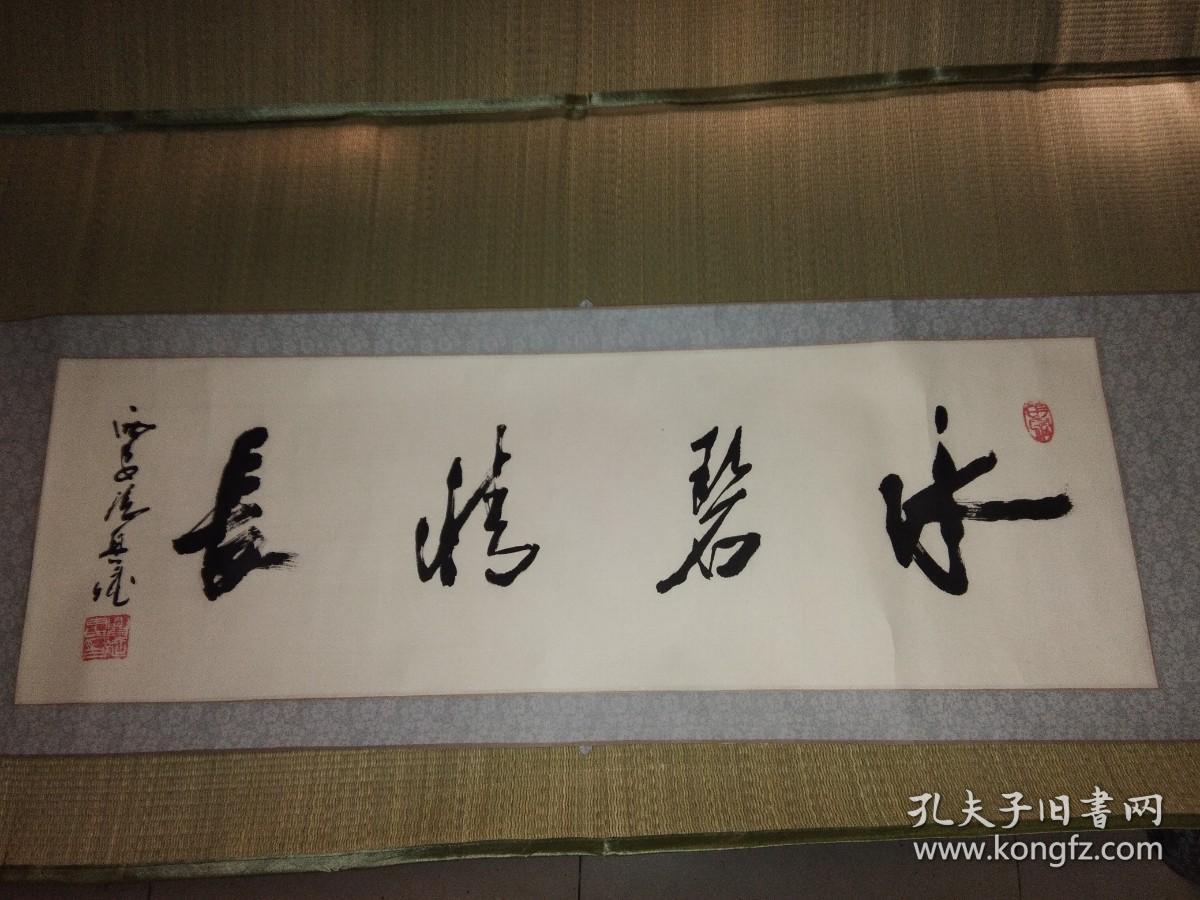 水碧情長
西安
孔夫子旧書网
www.kongfz.com